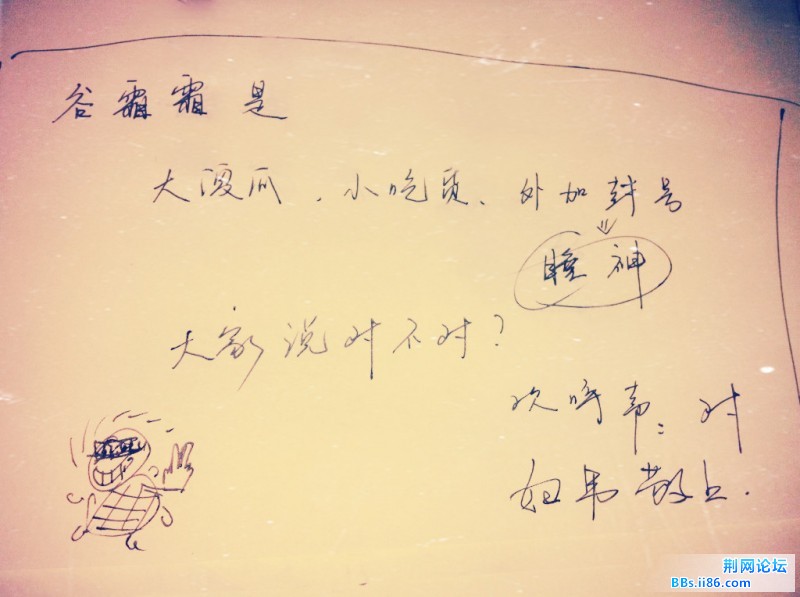 谷霜霜是
大傻瓜、小吃货、外加封号
睡神
大家说对不对?
对
荆网论坛
BBs.ii86.com